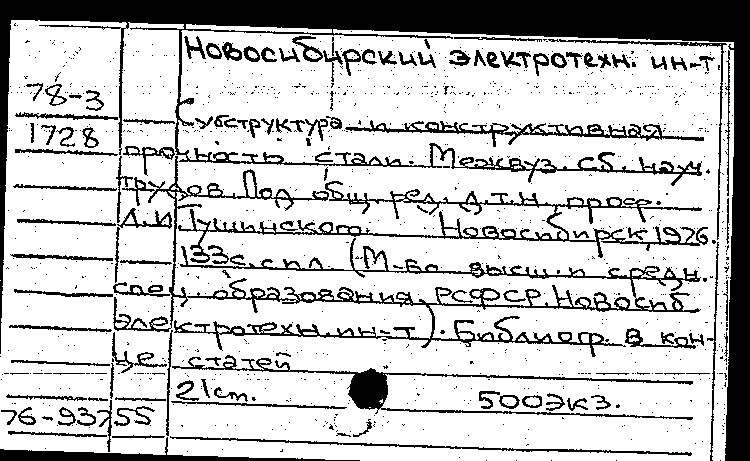 Новосибирский электротехн. ин-т.
78-3
1728
Субструктура и конструктивная
прочность стали. Межвуз. сб. науч.
трудов. Под общ. ред. д.т.н., проф.
Л.И. Тушинского. Новосибирск, 1976.
133 с. с ил. (М-во высш. и средн.
спец. образования РСФСР. Новосиб.
электротехн. ин-т). Библиогр. в кон-
це статей
21 cm. 500 экз.
76-93755